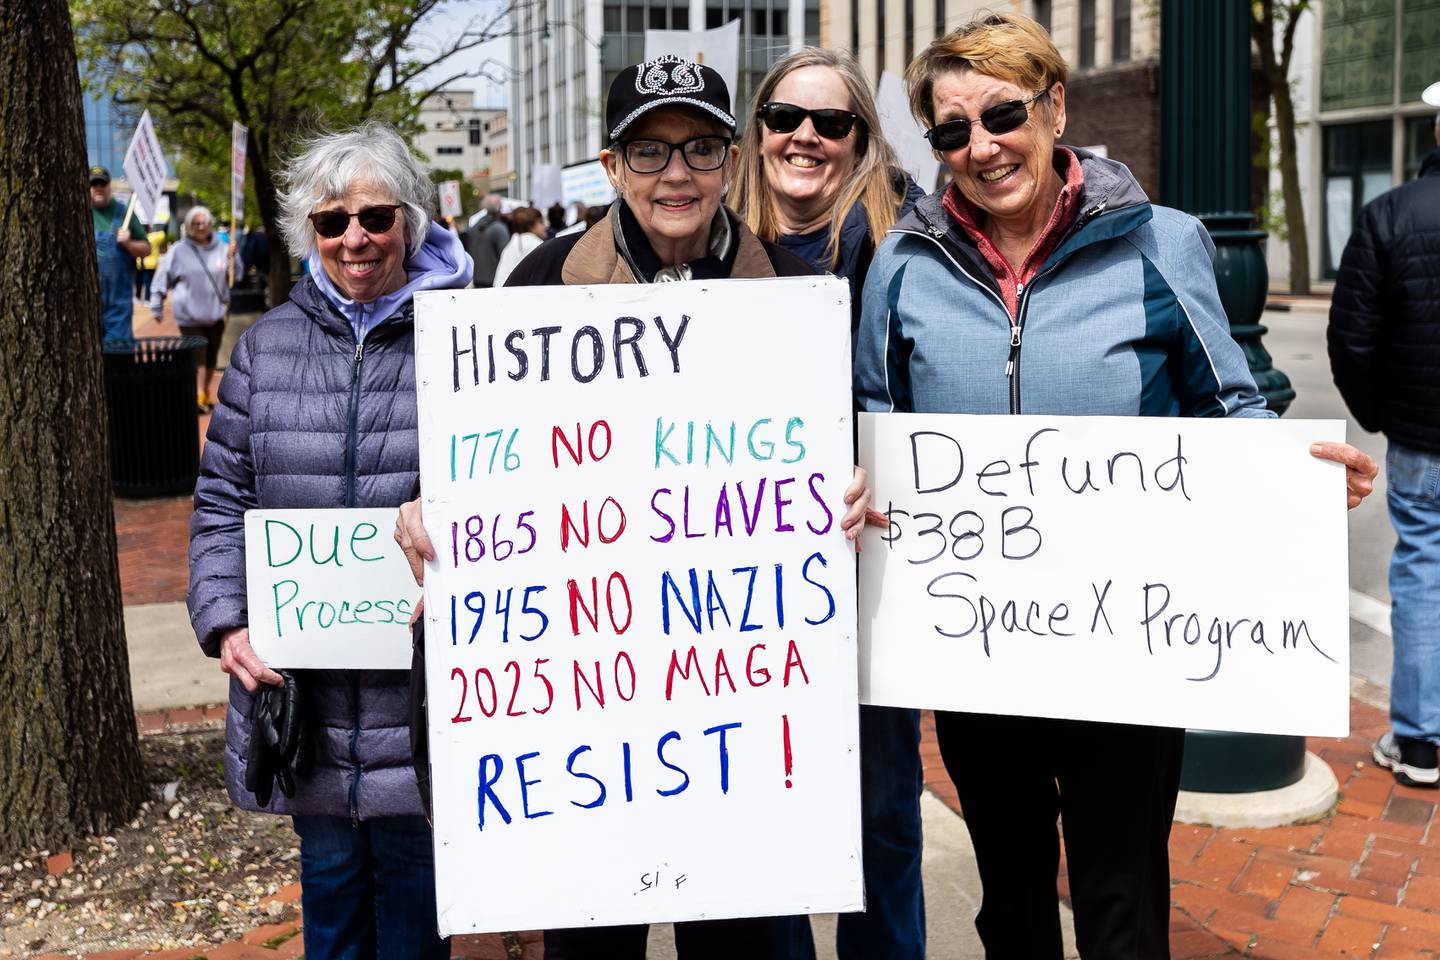 HISTORY
1776 NO KINGS
1865 NO SLAVES
1945 NO NAZIS
2025 NO MAGA
RESIST!
Due
Process
Defund
$38B
SpaceX Program